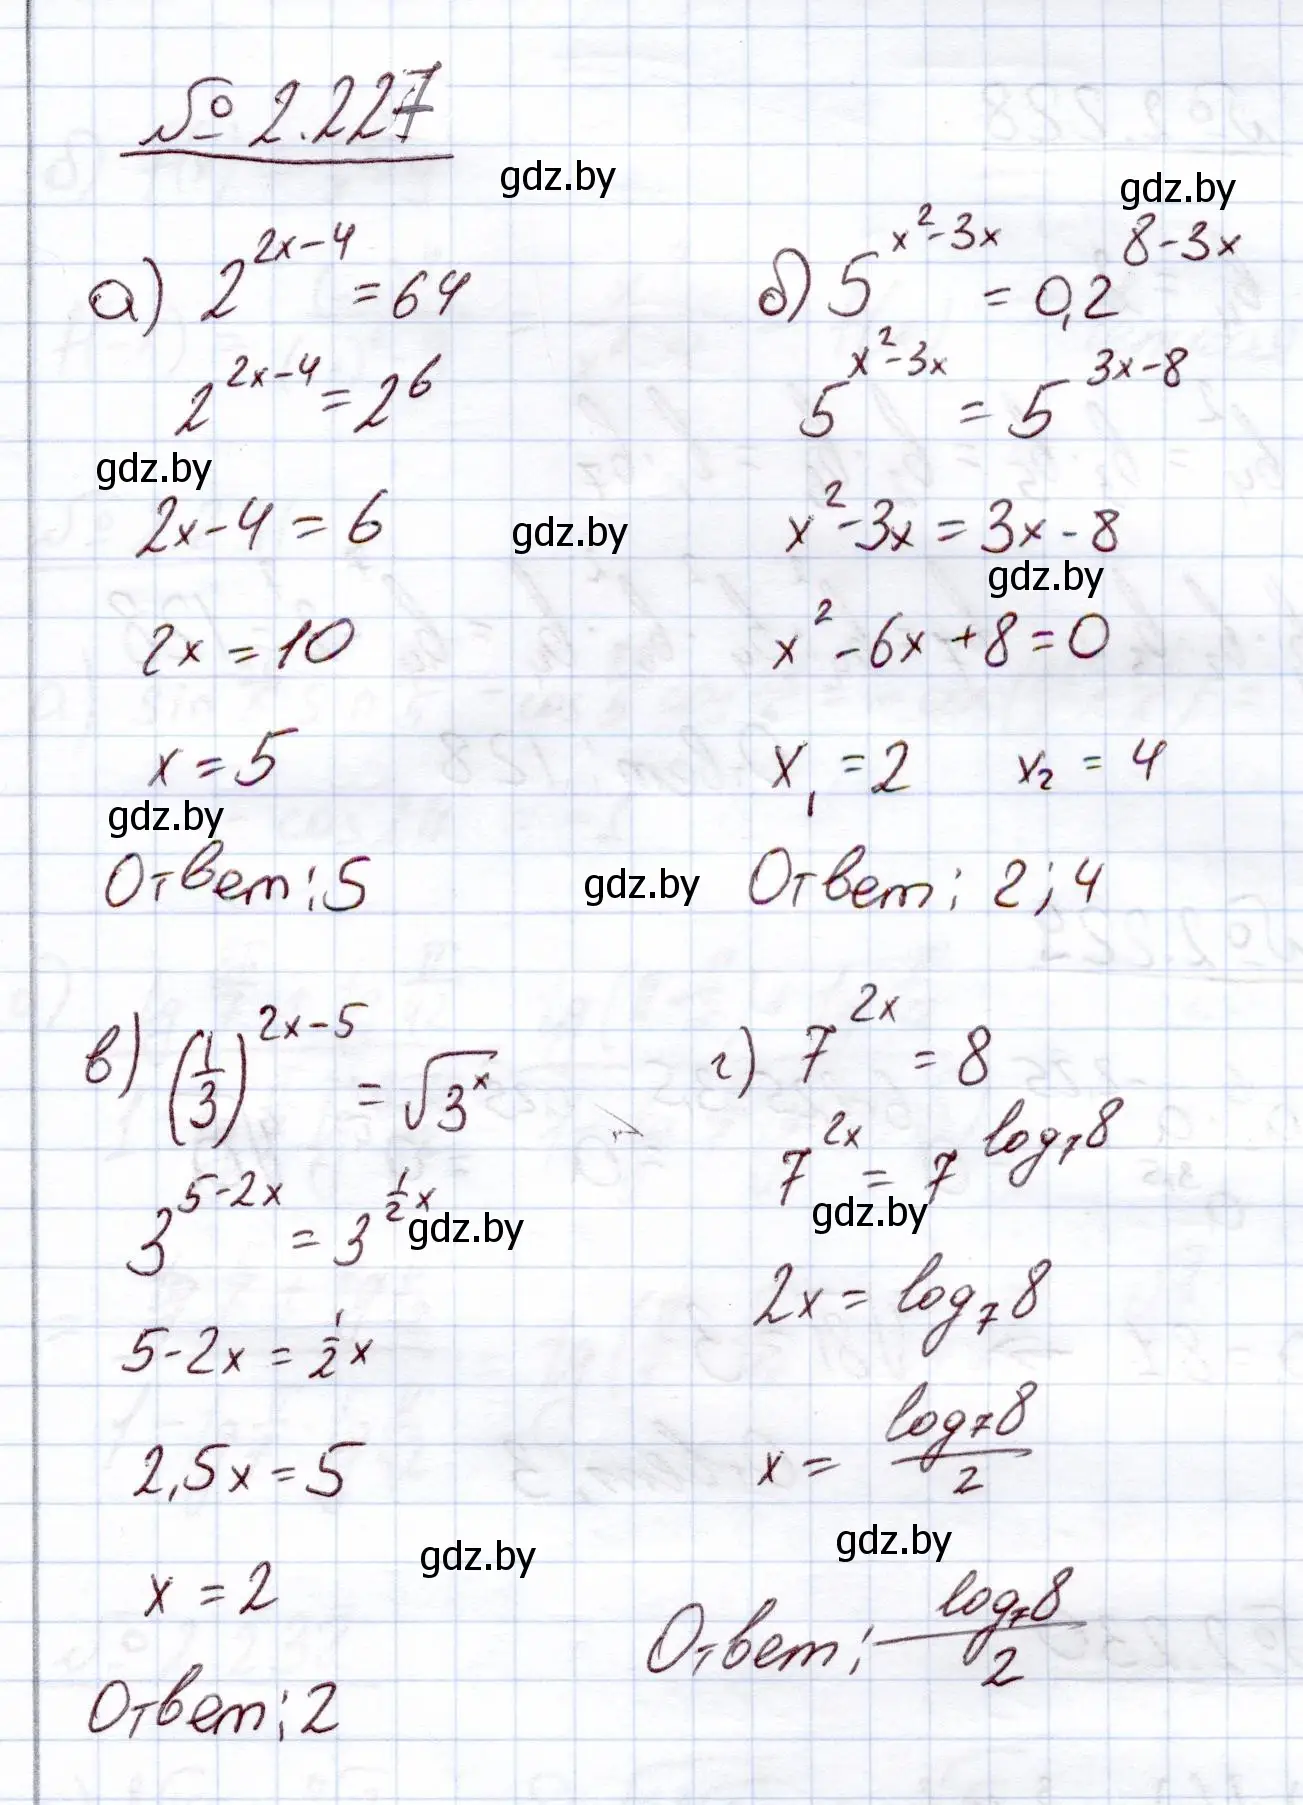 № 2.227
gdz.by
gdz.by
а) 2^(2x-4) = 64
2^(2x-4) = 2^6
gdz.by
2x-4 = 6
gdz.by
2x = 10
x = 5
gdz.by
Ответ: 5
б) 5^(x²-3x) = 0,2^(8-3x)
5^(x²-3x) = 5^(3x-8)
x²-3x = 3x-8
gdz.by
x²-6x+8=0
x₁ = 2 x₂ = 4
gdz.by
Ответ: 2; 4
в) (1/3)^(2x-5) = √3^x
3^(5-2x) = 3^(1/2 x)
gdz.by
5-2x = 1/2 x
2,5x = 5
gdz.by
x = 2
Ответ: 2
г) 7^(2x) = 8
7^(2x) = 7^(log₇8)
gdz.by
2x = log₇8
x = log₇8/2
gdz.by
Ответ: log₇8/2